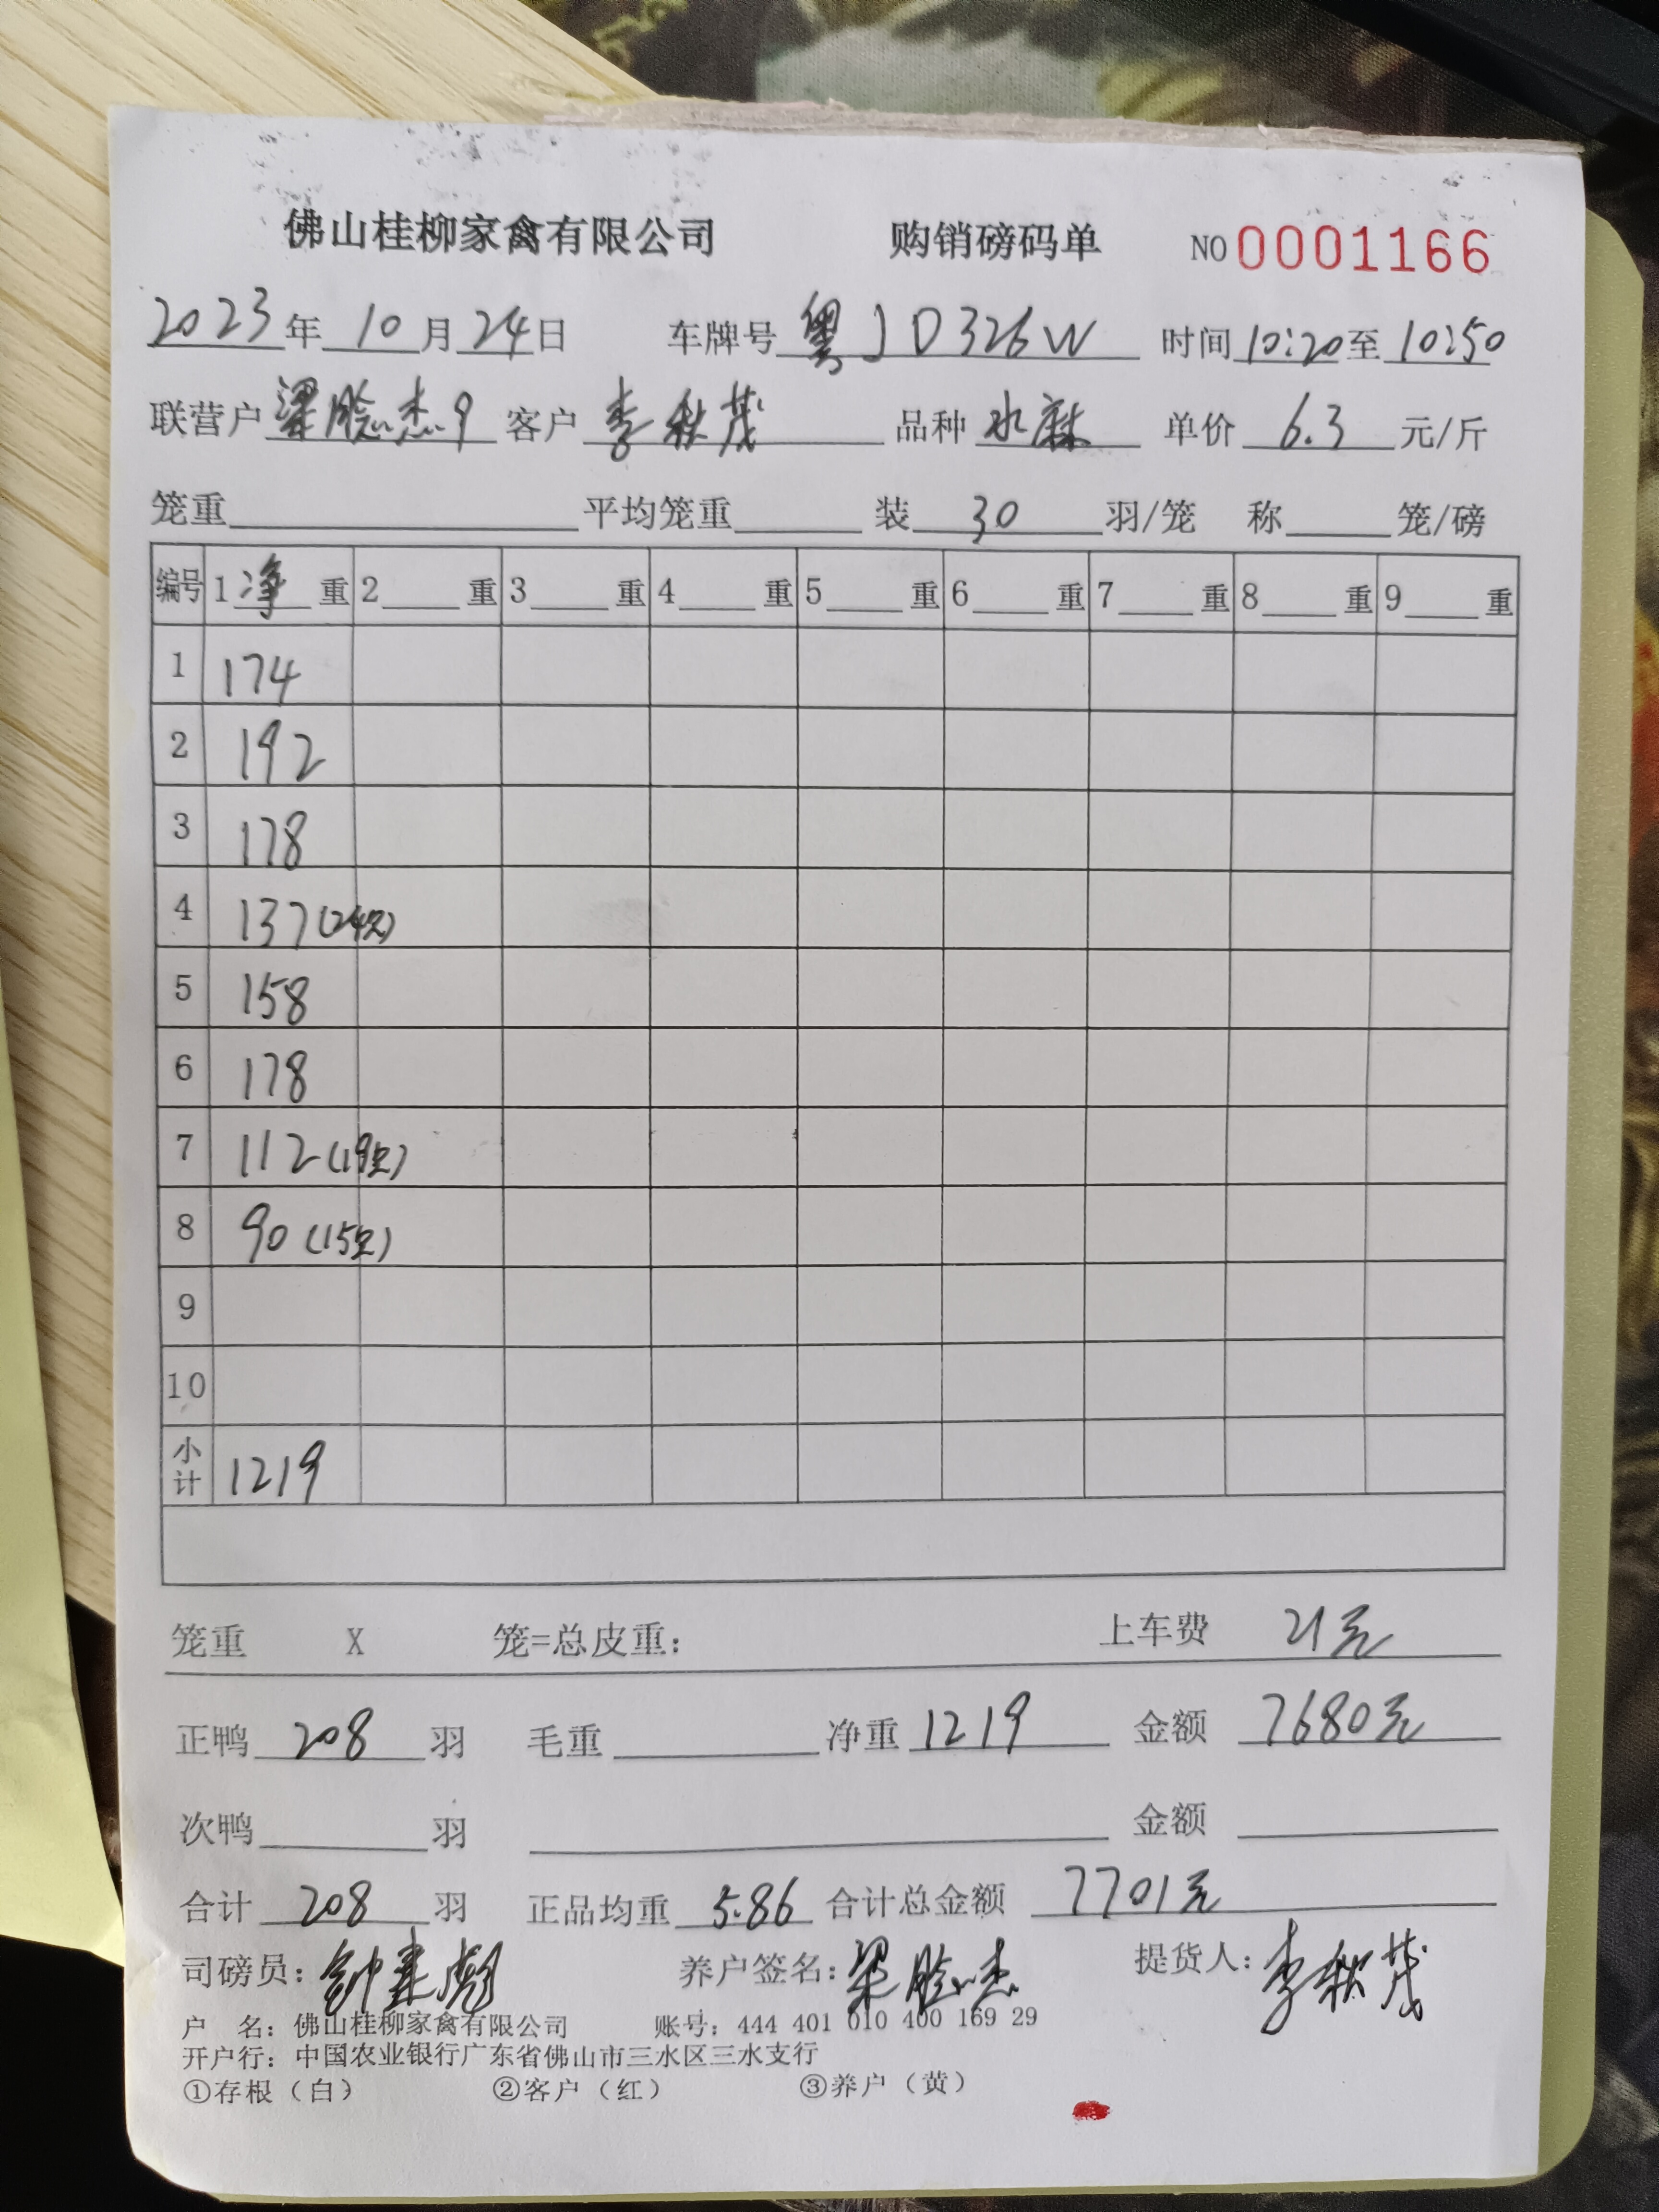 佛山桂柳家禽有限公司 购销磅码单 NO 0001166
2023年10月24日 车牌号 粤JD326W 时间 10:20至10:50
联营户 梁脸杰9 客户 李秋茂 品种 水麻 单价 6.3 元/斤
笼重 平均笼重 装 30 羽/笼 称 笼/磅
编号 1净重 2 重 3 重 4 重 5 重 6 重 7 重 8 重 9 重
1 174
2 192
3 178
4 137(24只)
5 158
6 178
7 112(19只)
8 90(15只)
9
10
小计 1219
笼重 X 笼=总皮重: 上车费 21元
正鸭 208 羽 毛重 净重 1219 金额 7680元
次鸭 羽 金额
合计 208 羽 正品均重 5.86 合计总金额 7701元
司磅员: 养户签名: 梁脸杰 提货人: 李秋茂
户 名: 佛山桂柳家禽有限公司 账号: 444 401 010 400 169 29
开户行: 中国农业银行广东省佛山市三水区三水支行
①存根（白） ②客户（红） ③养户（黄）